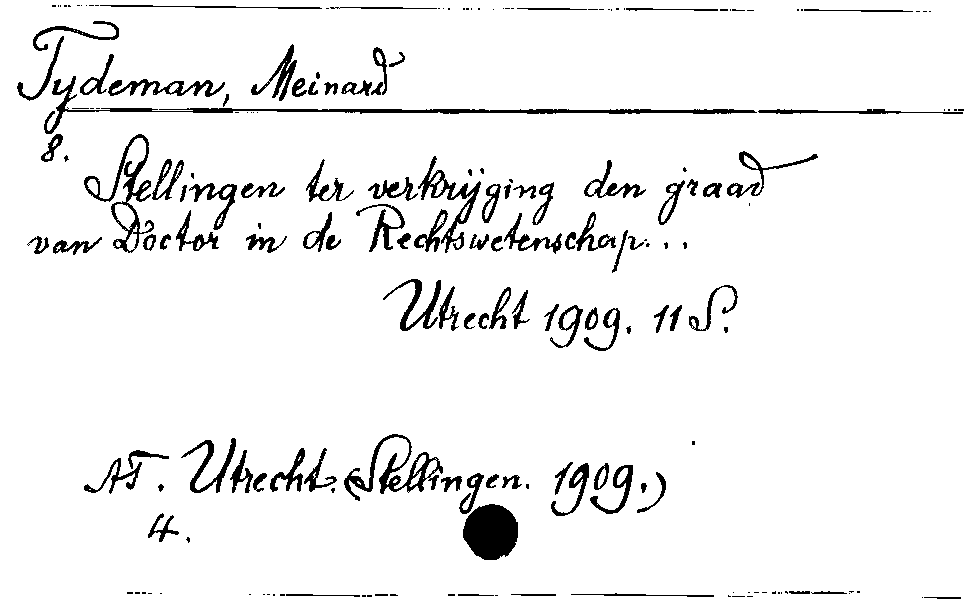 Tydeman, Meinard
8.
Stellingen ter verkrijging den graad
van Doctor in de Rechtswetenschap...
Utrecht 1909. 11 S.
AT. Utrecht. (Stellingen. 1909.)
4.